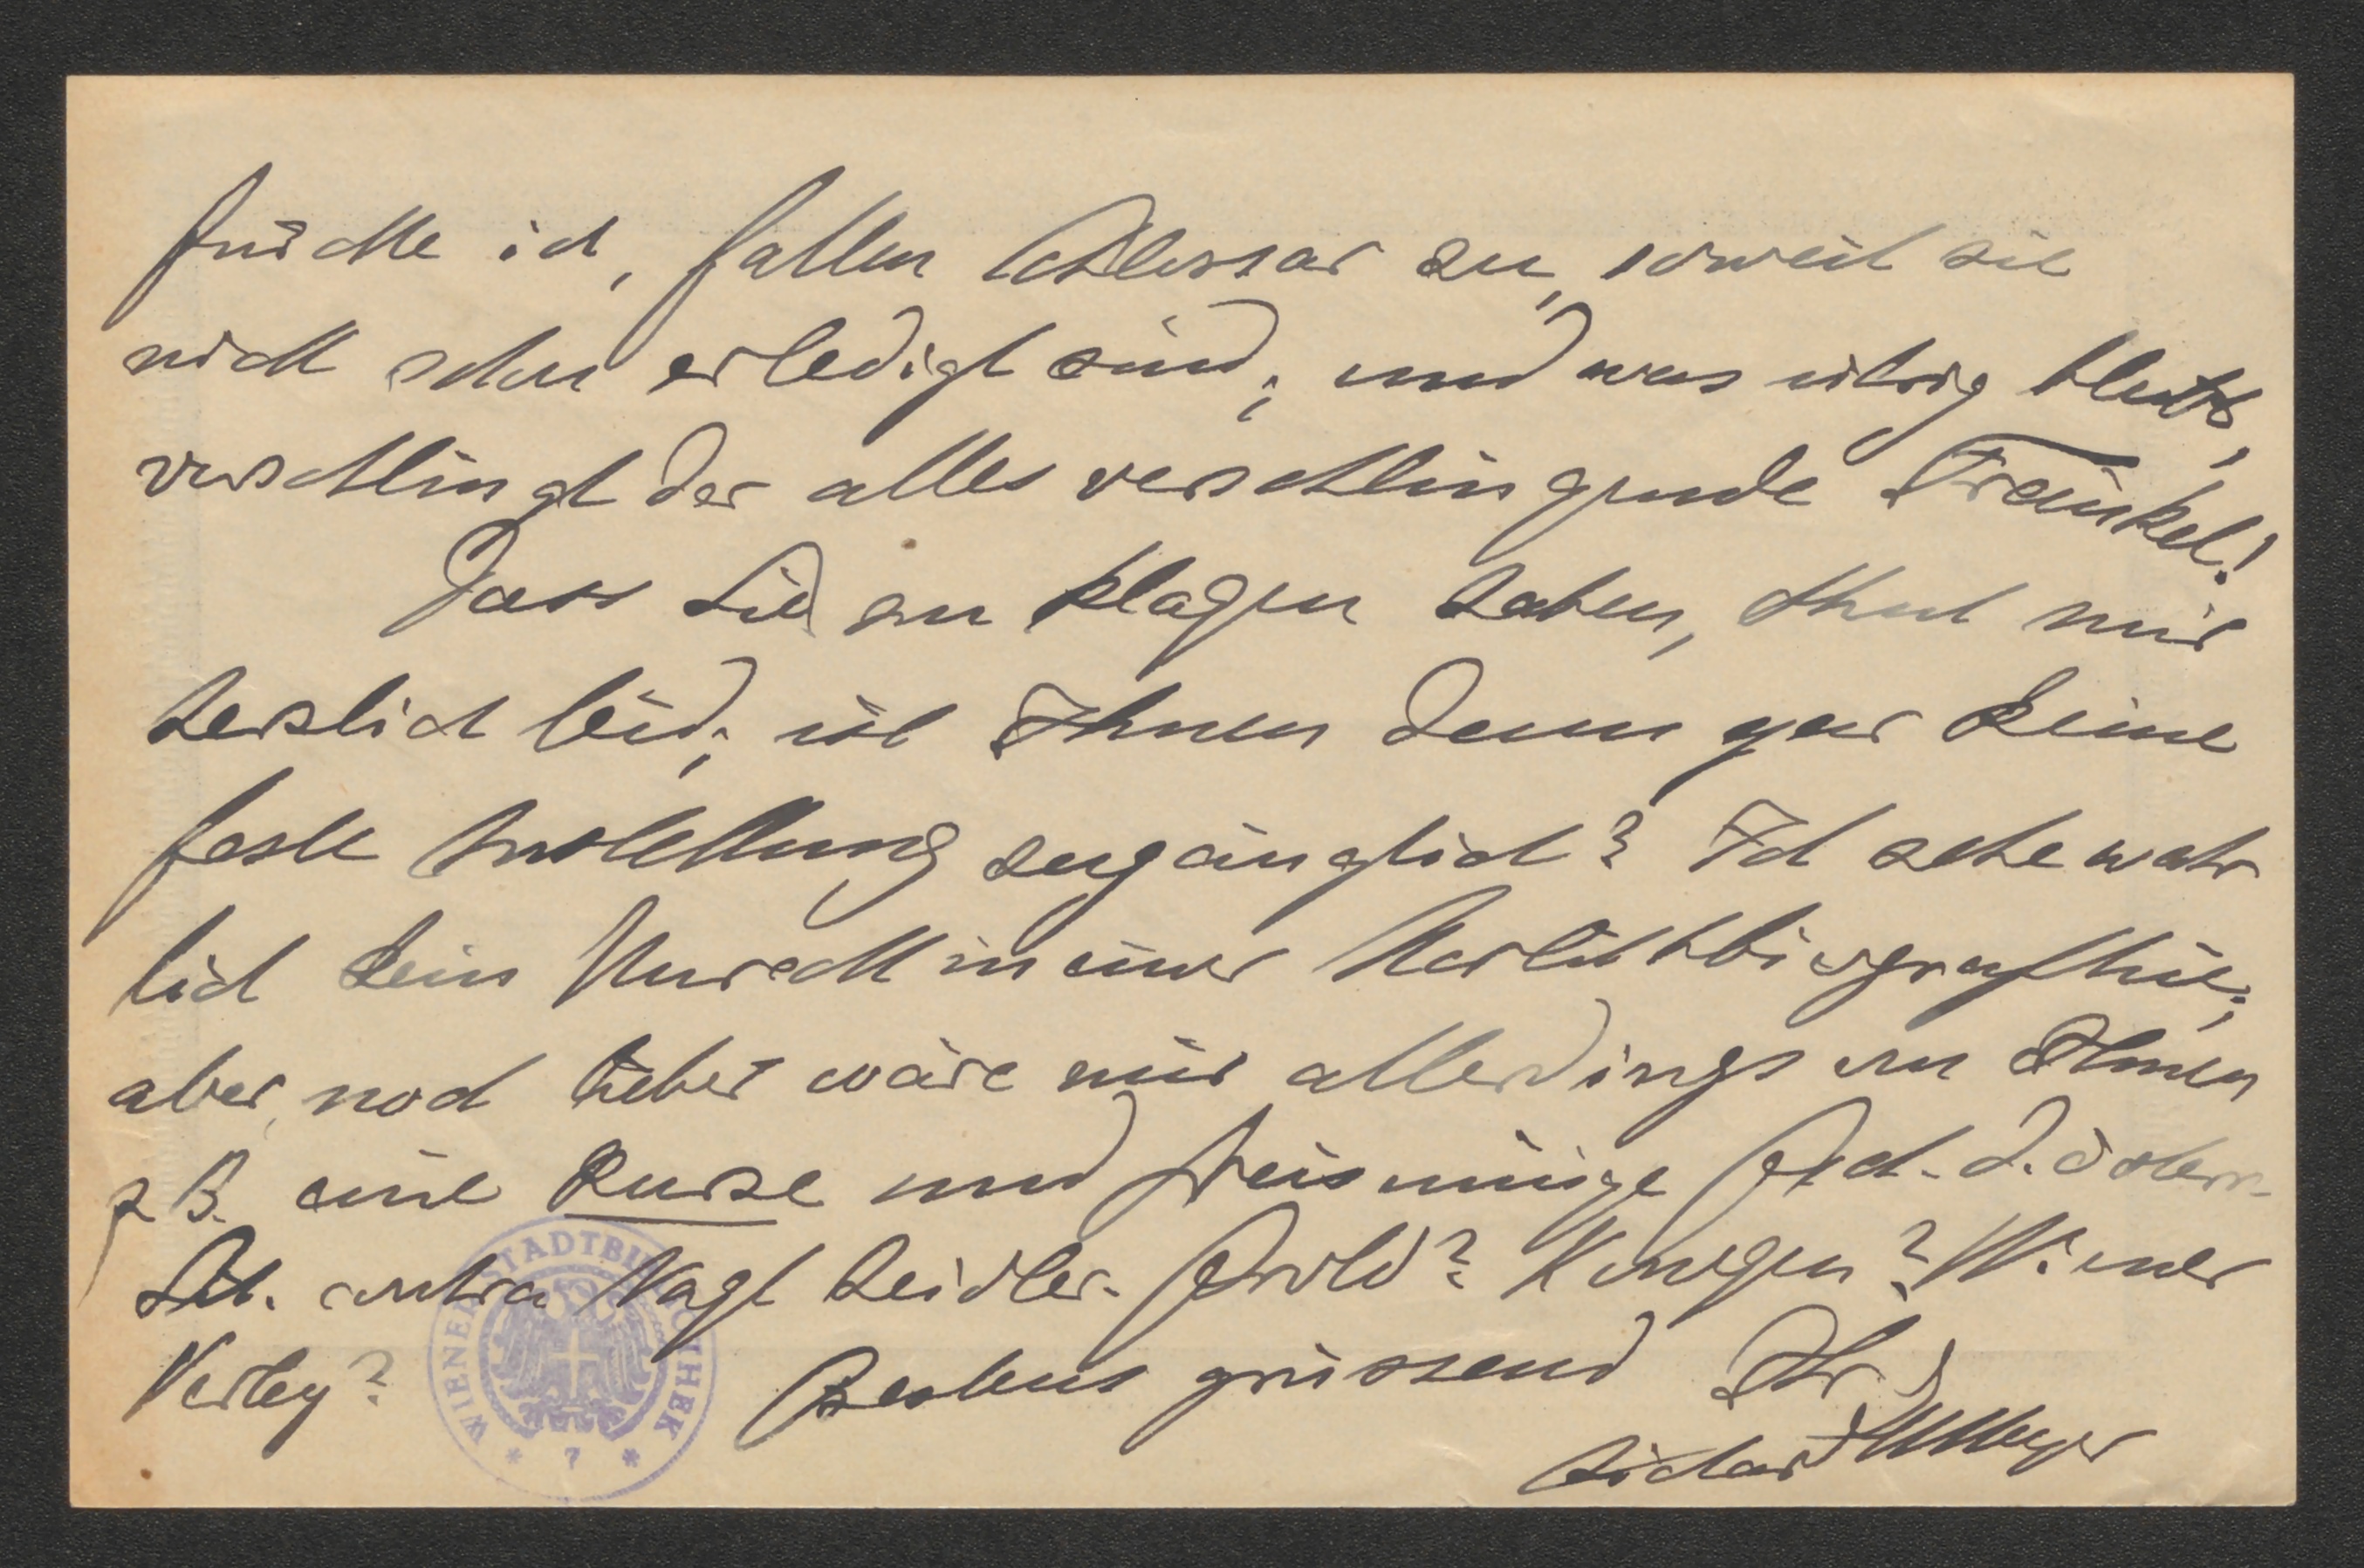 fürchte ich, fallen Schlossar zu, soweit sie
nicht schon erledigt sind; und was übrig bleibt,
verschlingt der alles verschlingende Fränkel!
Dass Sie zu klagen haben, thut mir
herzlich leid; ist Ihnen denn gar keine
feste Anstellung zugänglich? Ich sehe wahr
lich kein Unrecht in einer
aber noch lieber wäre mir allerdings von Ihnen
z B. eine kurze und freisinnige Gesch. d. österr.
Lit. contra Nagl Zeidler. Gerold? Konegen? Wiener
Verlag? Bestens grüssend Ihr
Richard M Meyer
WIENER STADTBIBLIOTHEK
* 7 *